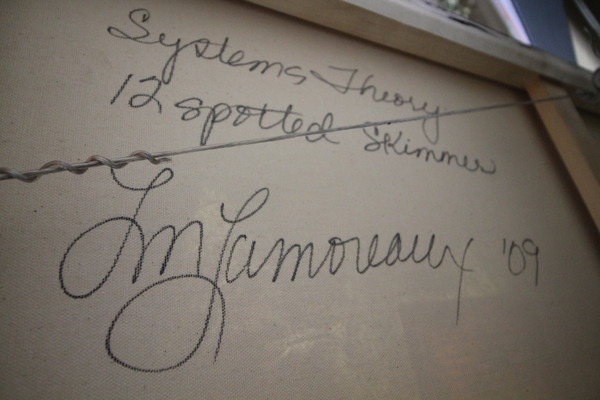 Systems Theory
12 spotted Skimmer
Lm Lamoreaux '09